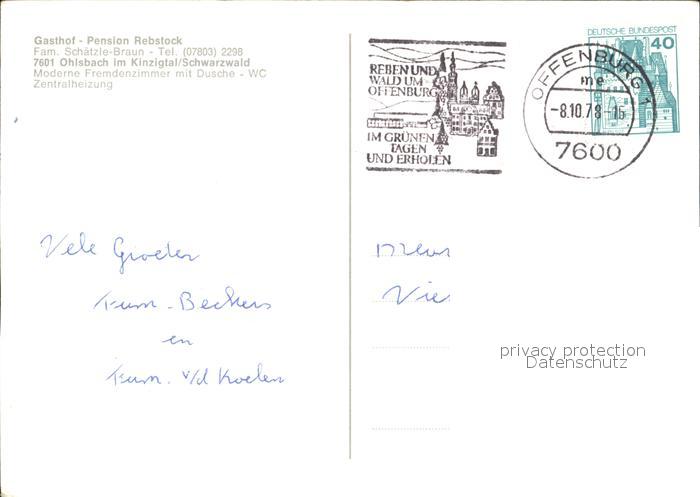 Gasthof - Pension Rebstock
Fam. Schätzle-Braun - Tel. (07803) 2298
7601 Ohlsbach im Kinzigtal/Schwarzwald
Moderne Fremdenzimmer mit Dusche - WC
Zentralheizung
REBEN UND
WALD UM
OFFENBURG
IM GRÜNEN
TAGEN
UND ERHOLEN
OFFENBURG 1
me
-8.10.78-15
7600
DEUTSCHE BUNDESPOST
40
Vele Groeten
Fam. Beckers
en
Fam. v/d Koelen
Vie
privacy protection
Datenschutz